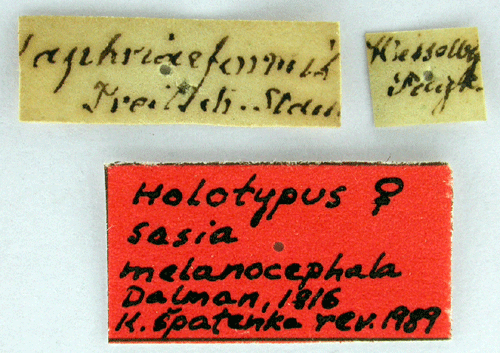 Laphriaeformis
Treitsch. Stau
Hesselby
Holotypus ♀
sasia
melanocephala
Dalman, 1816
K. Špatenka rev. 1989